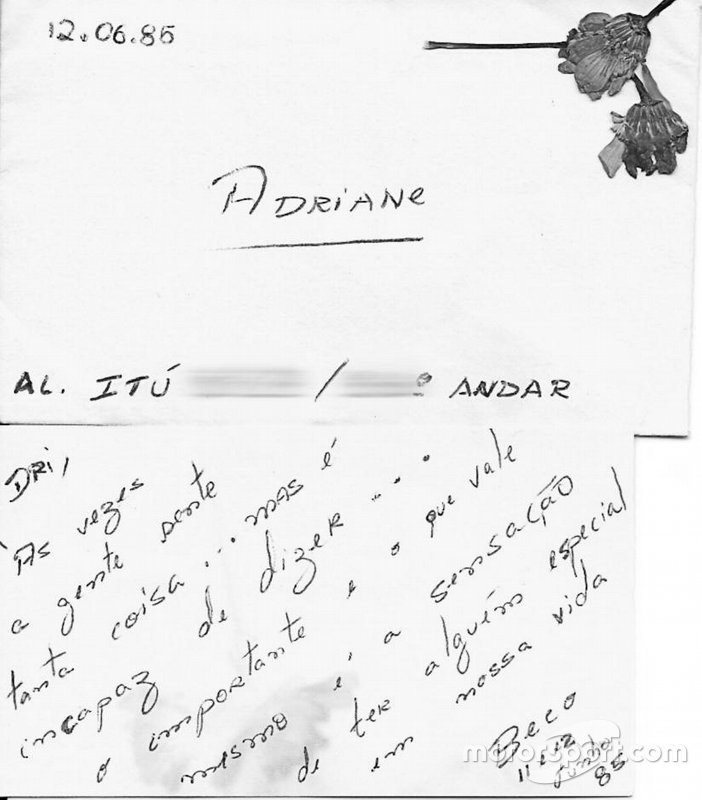 12.06.85
ADRIANE
AL. ITÚ / º ANDAR
DRI,
Às vezes
a gente sente
tanta coisa... mas é
incapaz de dizer...
o importante e o que vale
mesmo é, a sensação
de ter alguém especial
em nossa vida
Beco
11 e 12
Junho
85
motorsport.com